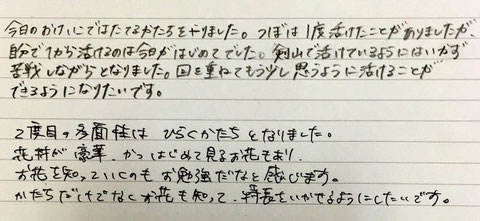 今日のおけいこではたてるかたちをやりました。つぼは1度活けたことがありましたが、
自分で1から活けるのは今日がはじめてでした。剣山で活けているようにはいかず
苦戦しながらとなりました。回を重ねてもう少し思うように活けることが
できるようになりたいです。
2度目の多面性は ひらくかたち となりました。
花材が豪華、かつはじめて見るお花もあり、
お花を知っていくのもお勉強だなと感じます。
かたちだけでなくお花も知って、特長をいかせるようにしたいです。